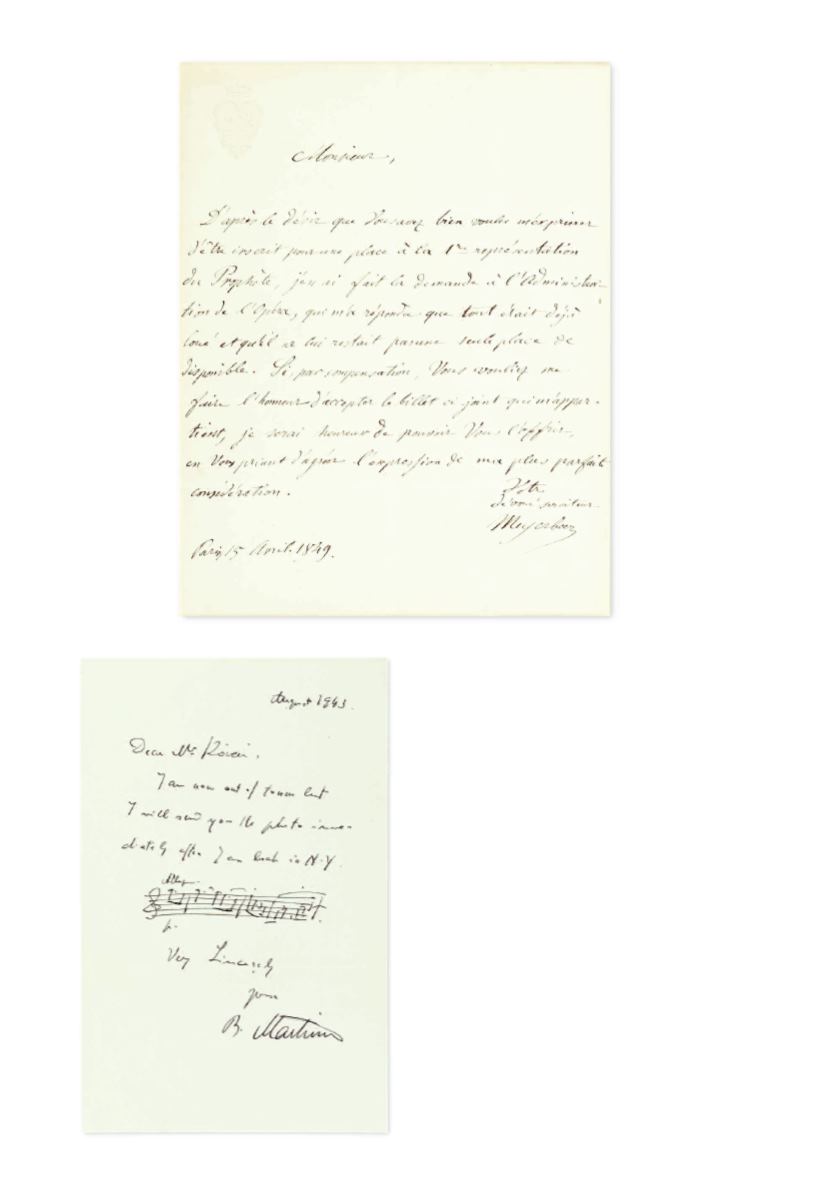 Monsieur,
D'après le désir que Vous avez bien voulu m'exprimer
d'être inscrit pour une place à la 1re représentation
du Prophète, j'en ai fait la demande à l'Administra-
tion de l'Opéra, qui m'a répondu que tout était déjà
loué et qu'il ne lui restait pas une seule place de
disponible. Si par compensation, Vous vouliez me
faire l'honneur d'accepter le billet ci joint qui m'appar-
tient, je serai heureux de pouvoir Vous l'offrir,
en Vous priant d'agréer l'expression de ma plus parfaite
considération.
Votre
dévoué serviteur
Meyerbeer
Paris 15 Avril 1849.
August 1943.
Dear Mr
I am now out of town but
I will send you the photo imme-
diately after I am back in N.Y.
Allegro
p.
Very Sincerely
yours
B. Martinu